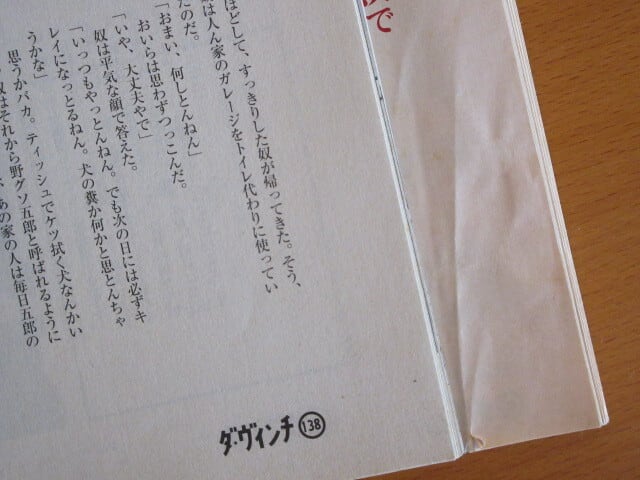 ほどして、すっきりした奴が帰ってきた。そう、
は人ん家のガレージをトイレ代わりに使ってい
たのだ。
「おまい、何しとんねん」
おいらは思わずつっこんだ。
「いや、大丈夫やで」
奴は平気な顔で答えた。
「いっつもやっとんねん。でも次の日には必ずキ
レイになっとるねん。犬の糞か何かと思とんちゃ
うかな」
思うかバカ。ティッシュでケツ拭く犬なんかい
奴はそれから野グソ五郎と呼ばれるように
あの家の人は毎日五郎の
ダ・ヴィンチ 138
で